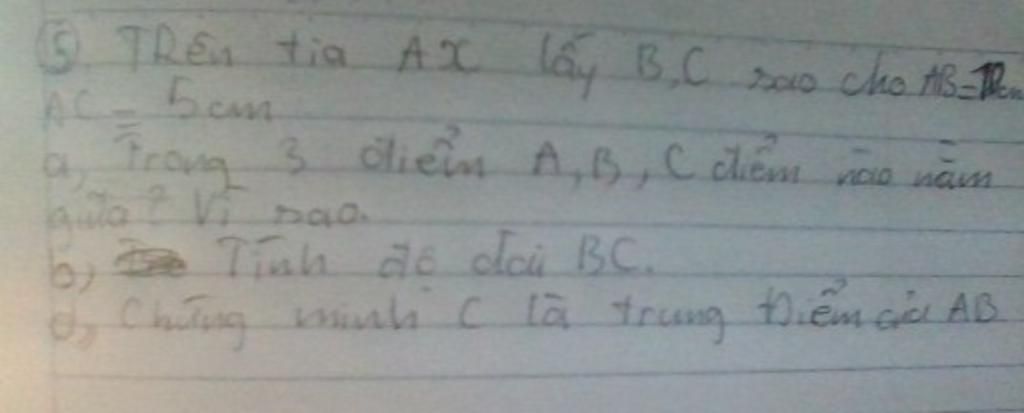 ⑤ TRên tia Ax lấy B,C sao cho AB=
AC = 5cm
a, Trong 3 điểm A, B, C điểm nào nằm
giữa? Vì sao.
b) Tính độ dài BC.
d, Chứng minh C là trung Điểm của AB